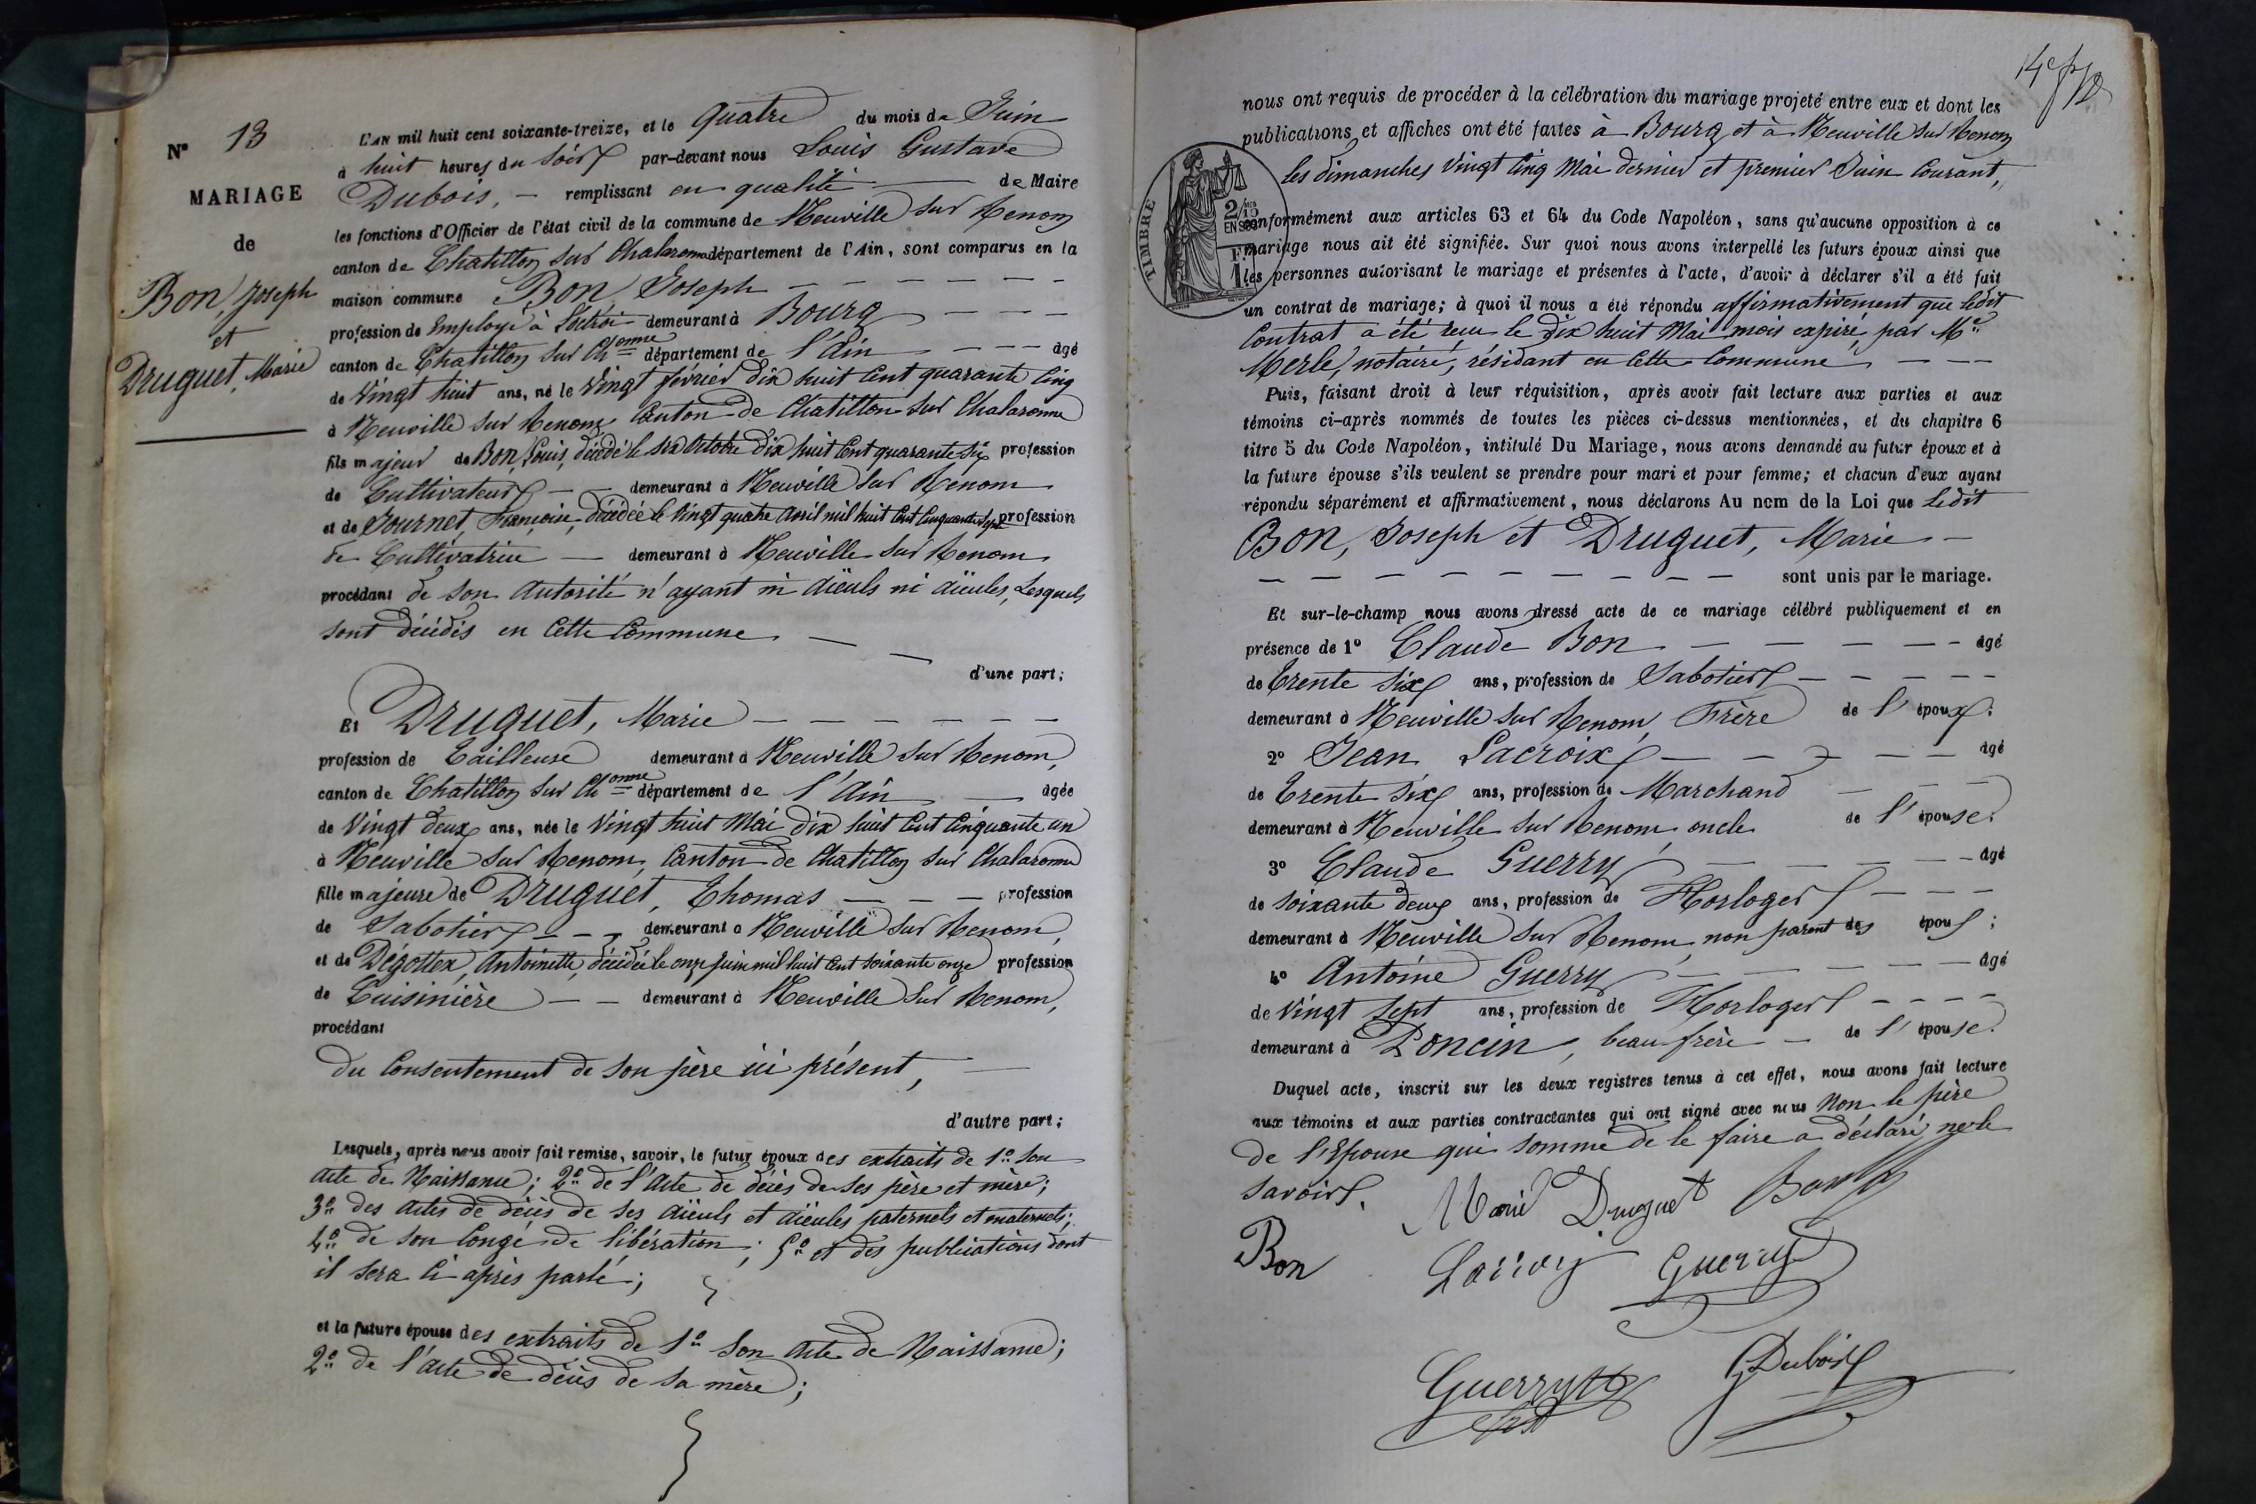 N° 13
MARIAGE
de
Bon, Joseph
et
Druguet, Marie
L'AN mil huit cent soixante-treize, et le quatre du mois de Juin
à huit heures du soir par-devant nous Louis Gustave
Dubois, — remplissant en qualité — de Maire
les fonctions d'Officier de l'état civil de la commune de Neuville sur Renom
canton de Chatillon sur Chalaronne département de l'Ain, sont comparus en la
maison commune Bon, Joseph — — — — — —
profession de Employé à l'octroi demeurant à Bourg — — —
canton de Chatillon sur Chonne département de l'Ain — — — âgé
de Vingt huit ans, né le Vingt février dix huit cent quarante cinq
à Neuville sur Renom, canton de Chatillon sur Chalaronne
fils majeur de Bon, Louis, décédé le six octobre dix huit cent quarante six profession
de Cultivateur — — demeurant à Neuville sur Renom
et de Journet, Françoise, décédée le vingt quatre avril mil huit cent cinquante sept profession
de Cultivatrice — demeurant à Neuville sur Renom,
procédant de son autorité n'ayant ni aïeuls ni aïeules, lesquels
sont décédés en cette Commune. — —
d'une part;
Et Druguet, Marie — — — — — —
profession de Tailleuse demeurant à Neuville sur Renom,
canton de Chatillon sur Chonne département de l'Ain — âgée
de Vingt deux ans, née le Vingt huit Mai dix huit cent cinquante un
à Neuville sur Renom, Canton de Chatillon sur Chalaronne
fille majeure de Druguet, Thomas — — — profession
de Sabotier — — demeurant à Neuville sur Renom,
et de Dégottex, Antoinette, décédée le onze Juin mil huit cent soixante onze profession
de Cuisinière — — demeurant à Neuville sur Renom,
procédant
du Consentement de son père ici présent, —
d'autre part;
Lesquels, après nous avoir fait remise, savoir, le futur époux des extraits de 1° son
acte de Naissance; 2° de l'Acte de décès de ses père et mère;
3° des actes de décès de ses aïeuls et aïeules paternels et maternels;
4° de son Congé de libération; 5° et des publications dont
il sera ci après parlé;
et la future épouse des extraits de 1° Son Acte de Naissance;
2° de l'acte de décès de sa mère;
nous ont requis de procéder à la célébration du mariage projeté entre eux et dont les
publications et affiches ont été faites à Bourg et à Neuville sur Renom
les dimanches Vingt Cinq Mai dernier et premier Juin Courant,
TIMBRE
2/10 EN SUS
conformément aux articles 63 et 64 du Code Napoléon, sans qu'aucune opposition à ce
mariage nous ait été signifiée. Sur quoi nous avons interpellé les futurs époux ainsi que
les personnes autorisant le mariage et présentes à l'acte, d'avoir à déclarer s'il a été fait
un contrat de mariage; à quoi il nous a été répondu affirmativement que ledit
Contrat a été reçu le dix huit Mai mois expiré, par Me
Merle, notaire, résidant en cette Commune — — —
Puis, faisant droit à leur réquisition, après avoir fait lecture aux parties et aux
témoins ci-après nommés de toutes les pièces ci-dessus mentionnées, et du chapitre 6
titre 5 du Code Napoléon, intitulé Du Mariage, nous avons demandé au futur époux et à
la future épouse s'ils veulent se prendre pour mari et pour femme; et chacun d'eux ayant
répondu séparément et affirmativement, nous déclarons Au nom de la Loi que ledit
Bon, Joseph et Druguet, Marie —
— — — — — — — — — sont unis par le mariage.
Et sur-le-champ nous avons dressé acte de ce mariage célébré publiquement et en
présence de 1° Claude Bon — — — — — — âgé
de Trente six ans, profession de Sabotier — — — — —
demeurant à Neuville sur Renom, Frère de l'époux;
2° Jean Lacroix — — — — — âgé
de Trente six ans, profession de Marchand — — —
demeurant à Neuville sur Renom, oncle de l'épouse.
3° Claude Guerry — — — — — âgé
de soixante deux ans, profession de Horloger — — —
demeurant à Neuville sur Renom, non parent des époux;
4° Antoine Guerry — — — — — âgé
de Vingt sept ans, profession de Horloger — — — —
demeurant à Poncin, beau-frère — de l'épouse.
Duquel acte, inscrit sur les deux registres tenus à cet effet, nous avons fait lecture
aux témoins et aux parties contractantes qui ont signé avec nous Non le père
de l'Epouse qui sommé de le faire a déclaré ne le
savoir.
Marie Druguet Bon
Bon Lacroix Guerry
Guerry
Dubois